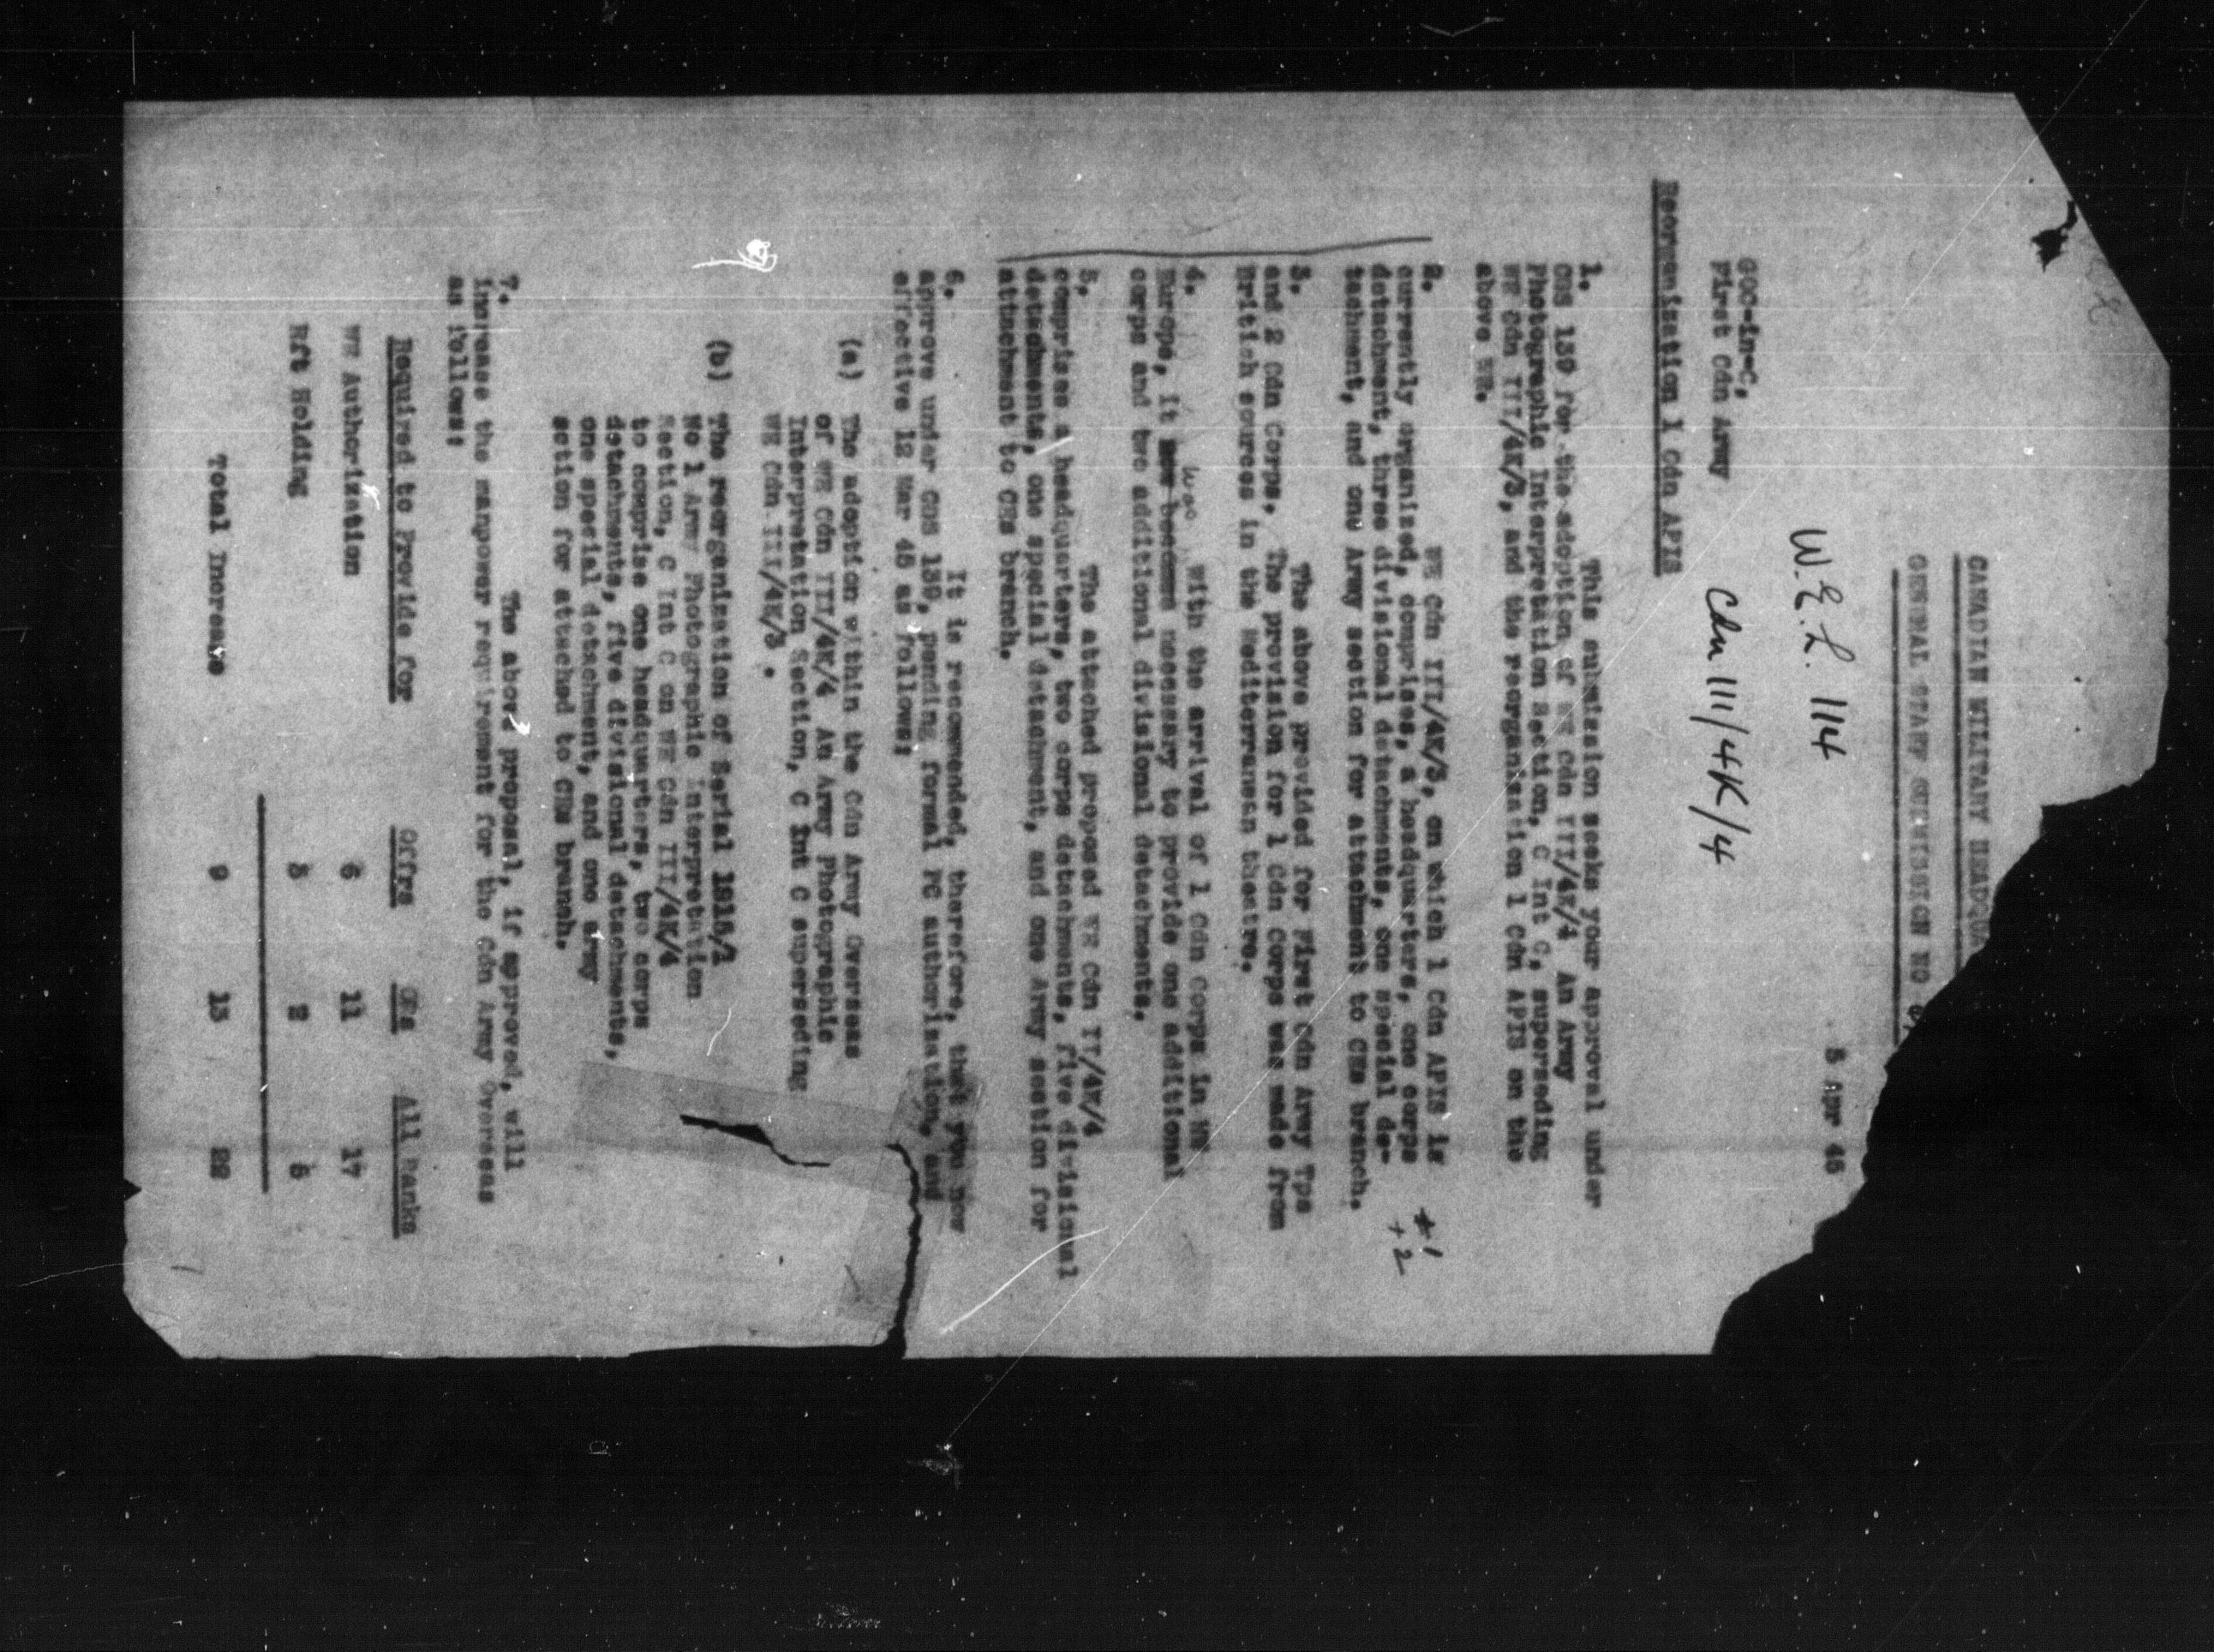 CANADIAN MILITARY HEADQUA
GENERAL STAFF SUBMISSION NO
5 Apr 45
W.E.L. 114
Cdn III/4K/4
GOC-in-C,
First Cdn Army
Reorganization 1 Cdn APIS
1. This submission seeks your approval under
CDS 139 for the adoption of WE Cdn III/4K/4 An Army
Photographic Interpretation Section, C Int C, superseding
WE Cdn III/4K/3, and the reorganization 1 Cdn APIS on the
above WE.
2. WE Cdn III/4K/3, on which 1 Cdn APIS is
currently organized, comprises, a headquarters, one corps
detachment, three divisional detachments, one special de-
tachment, and one Army section for attachment to CEs branch.
+2
3. The above provided for First Cdn Army Tps
and 2 Cdn Corps. The provision for 1 Cdn Corps was made from
British sources in the Mediterranean theatre.
4. With the arrival of 1 Cdn Corps in NW
Europe, it was necessary to provide one additional
corps and two additional divisional detachments.
5. The attached proposed WE Cdn II/4K/4
comprises a headquarters, two corps detachments, five divisional
detachments, one special detachment, and one Army section for
attachment to CEs branch.
6. It is recommended, therefore, that you now
approve under CDS 139, pending formal PC authorization, and
effective 12 Mar 45 as follows:
(a) The adoption within the Cdn Army Overseas
of WE Cdn III/4K/4 An Army Photographic
Interpretation Section, C Int C superseding
WE Cdn III/4K/3.
(b) The reorganization of Serial
No 1 Army Photographic Interpretation
Section, C Int C on WE Cdn III/4K/4
to comprise one headquarters, two corps
detachments, five divisional detachments,
one special detachment, and one army
section for attached to CEs branch.
7. The above proposal, if approved, will
increase the manpower requirement for the Cdn Army Overseas
as follows:
Required to Provide for Offrs ORs All Ranks
WE Authorization 6 11 17
Rft Holding 3 2 5
Total Increase 9 13 22